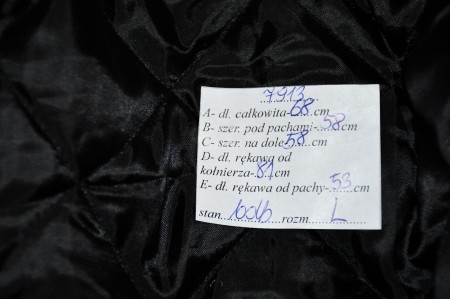 ...7913......
A- dł. całkowita-68.cm
B- szer. pod pachami-.58cm
C- szer. na dole-58....cm
D- dł. rękawa od
kołnierza-.81cm
E- dł. rękawa od pachy-.53.cm
stan..100%......rozm.....L........